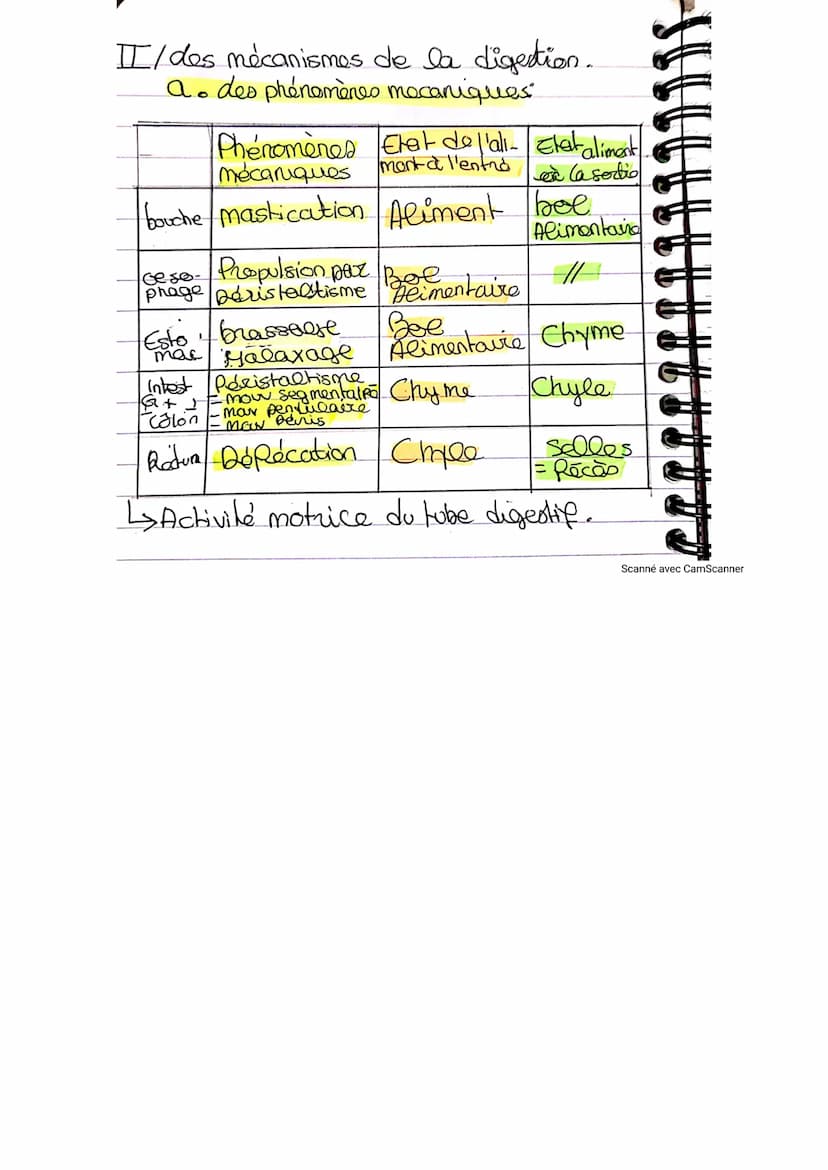 II/des mécanismes de la digestion.
a. des phénomènes mécaniques:
Phénomènes mécaniques
Etat de l'aliment à l'entré
Etat aliment à la sortie
bouche
mastication
Aliment
bol Alimentaire
oeso-phage
Propulsion par péristaltisme
Bol Alimentaire
//
Esto mac
brassage Malaxage
Bol Alimentaire
Chyme
Intest
Colon
Péristaltisme
- mouv segmentaire
- mouv pendulaire
- mouv péris
Chyme
Chyle
Rectum
Défécation
Chyle
Selles
= Fécès
↳Activité motrice du tube digestif.
Scanné avec CamScanner